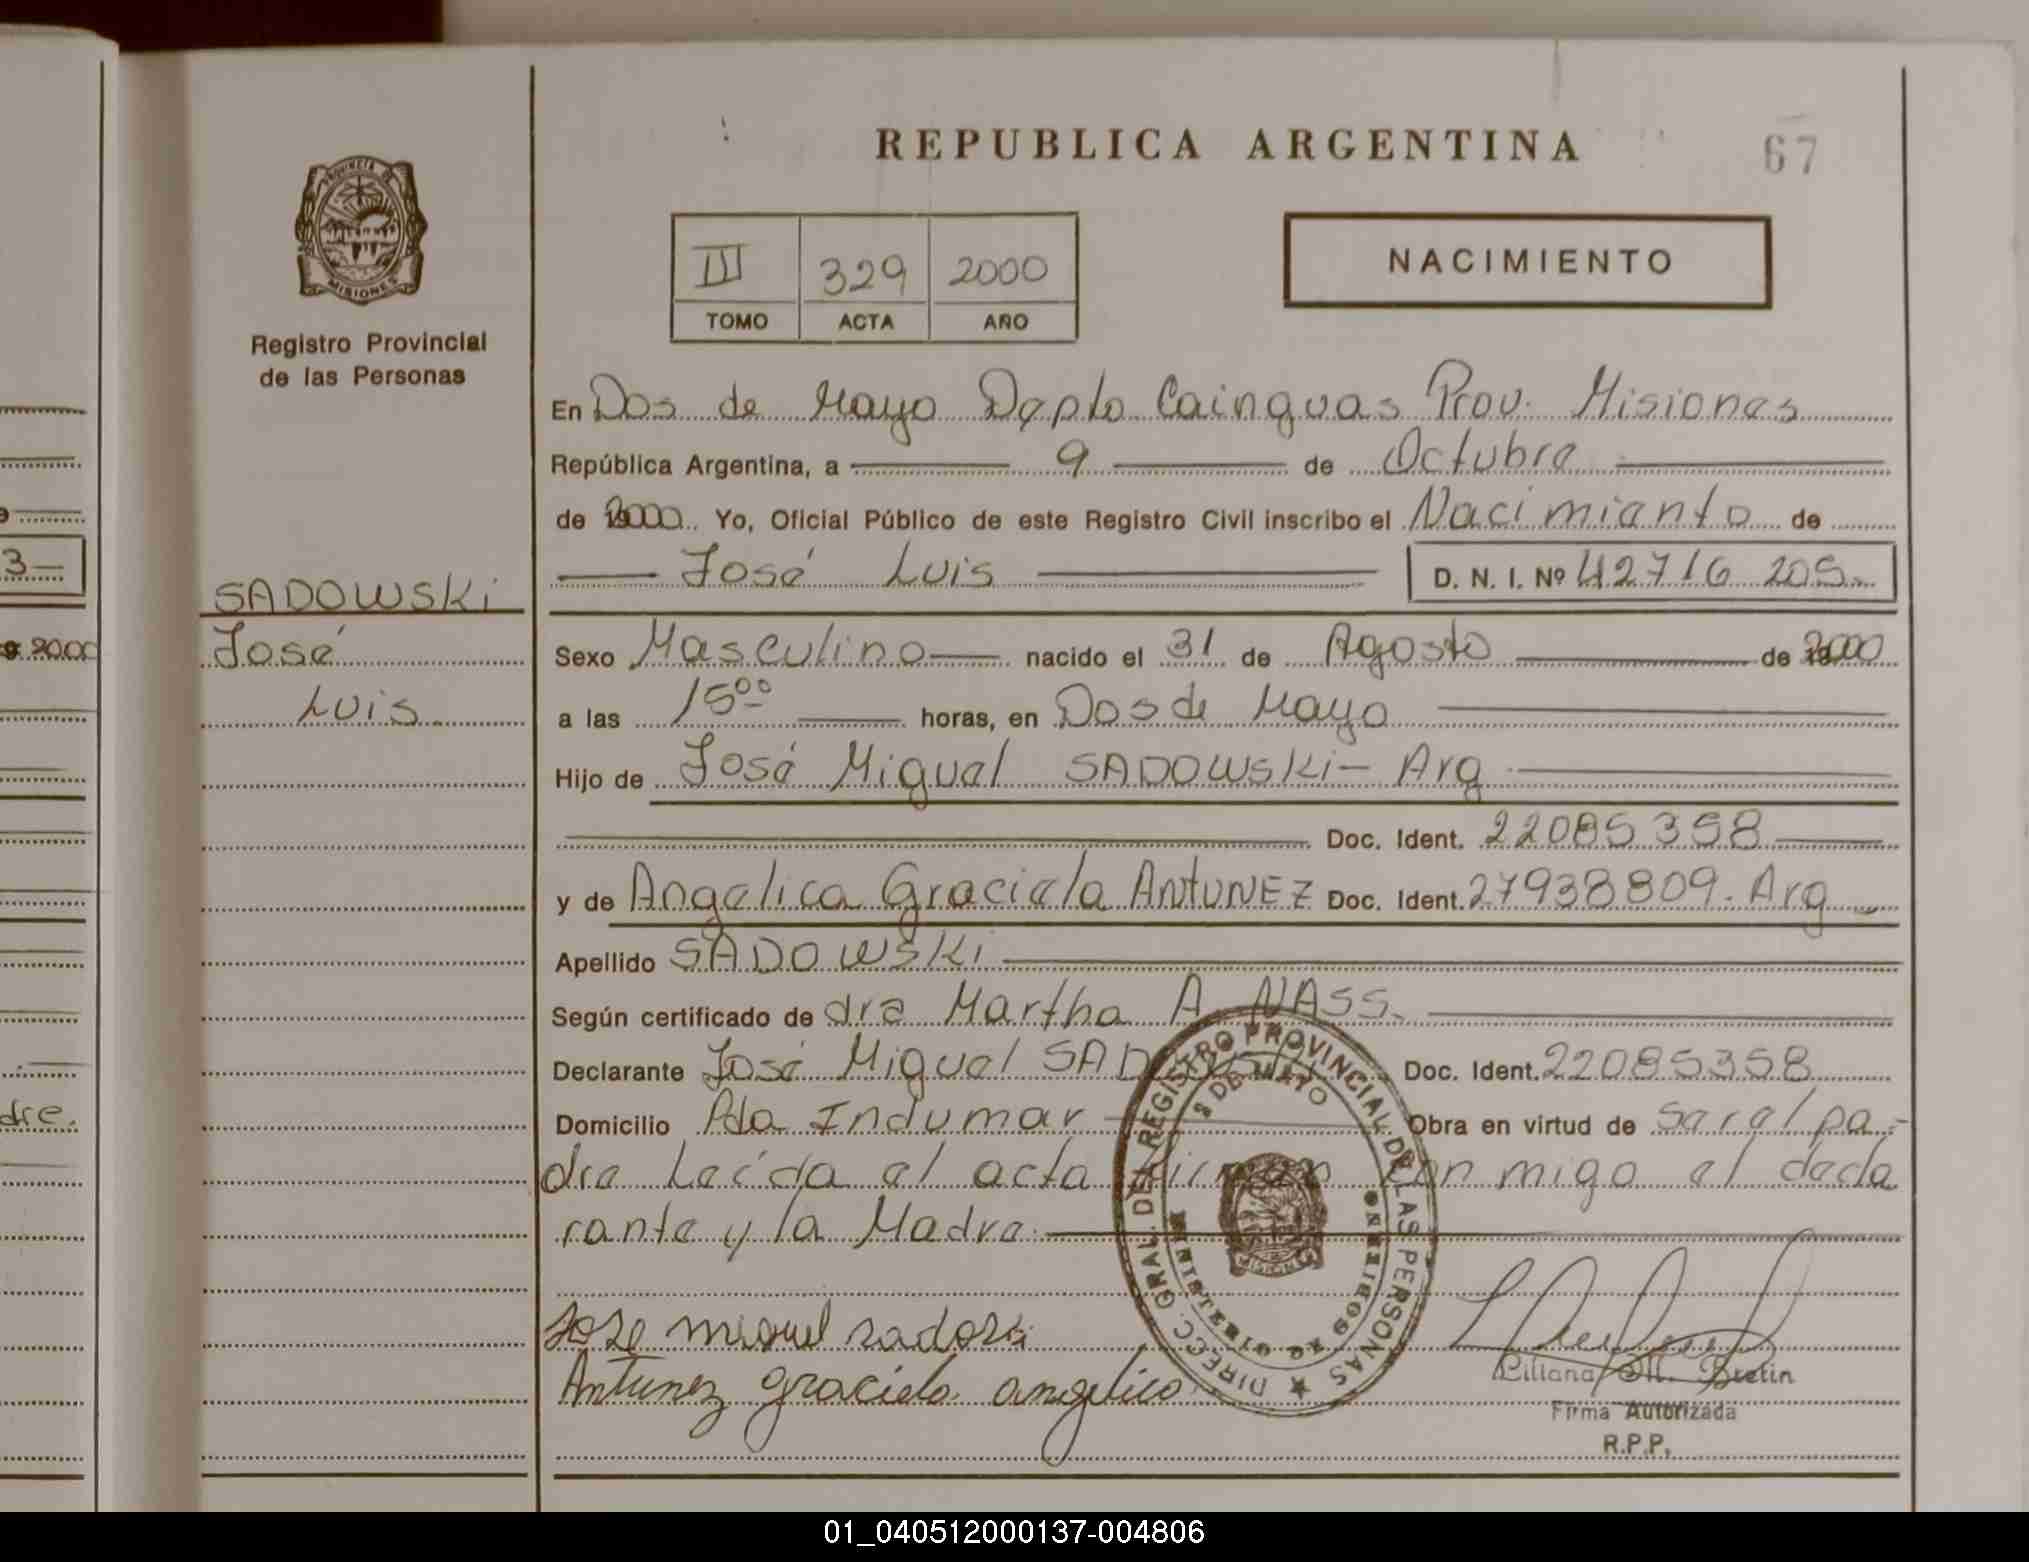 REPUBLICA ARGENTINA
67
PROVINCIA DE
MISIONES
Registro Provincial
de las Personas
III 329 2000
TOMO ACTA AÑO
NACIMIENTO
En Dos de Mayo Depto Cainguas Prov. Misiones
República Argentina, a 9 de Octubre
de 2000 Yo, Oficial Público de este Registro Civil inscribo el Nacimiento de
José Luis D. N. I. Nº 42716 205
3
SADOWSKi
José
Luis
2000
Sexo Masculino nacido el 31 de Agosto de 2000
a las 15⁰⁰ horas, en Dos de Mayo
Hijo de José Miguel SADOWSKi - Arg
Doc. Ident. 22085358
y de Angelica Graciela ANtUNEZ Doc. Ident. 27938809. Arg
Apellido SADOWSKi
Según certificado de dra Martha A NASS.
Declarante José Miguel SADOWSKi Doc. Ident. 22085358
Domicilio Pda Indumar Obra en virtud de ser el pa-
dre Leída el acta firman conmigo el decla
rante y la Madre.
dre.
DIRECC. GRAL. DEL REGISTRO PROVINCIAL DE LAS PERSONAS
2 DE MAYO
MINISTERIO DE GOBIERNO
MISIONES
Jose miguel sadoski
Antunez graciela angelica
Liliana M. Bretin
Firma Autorizada
R.P.P.
01_040512000137-004806